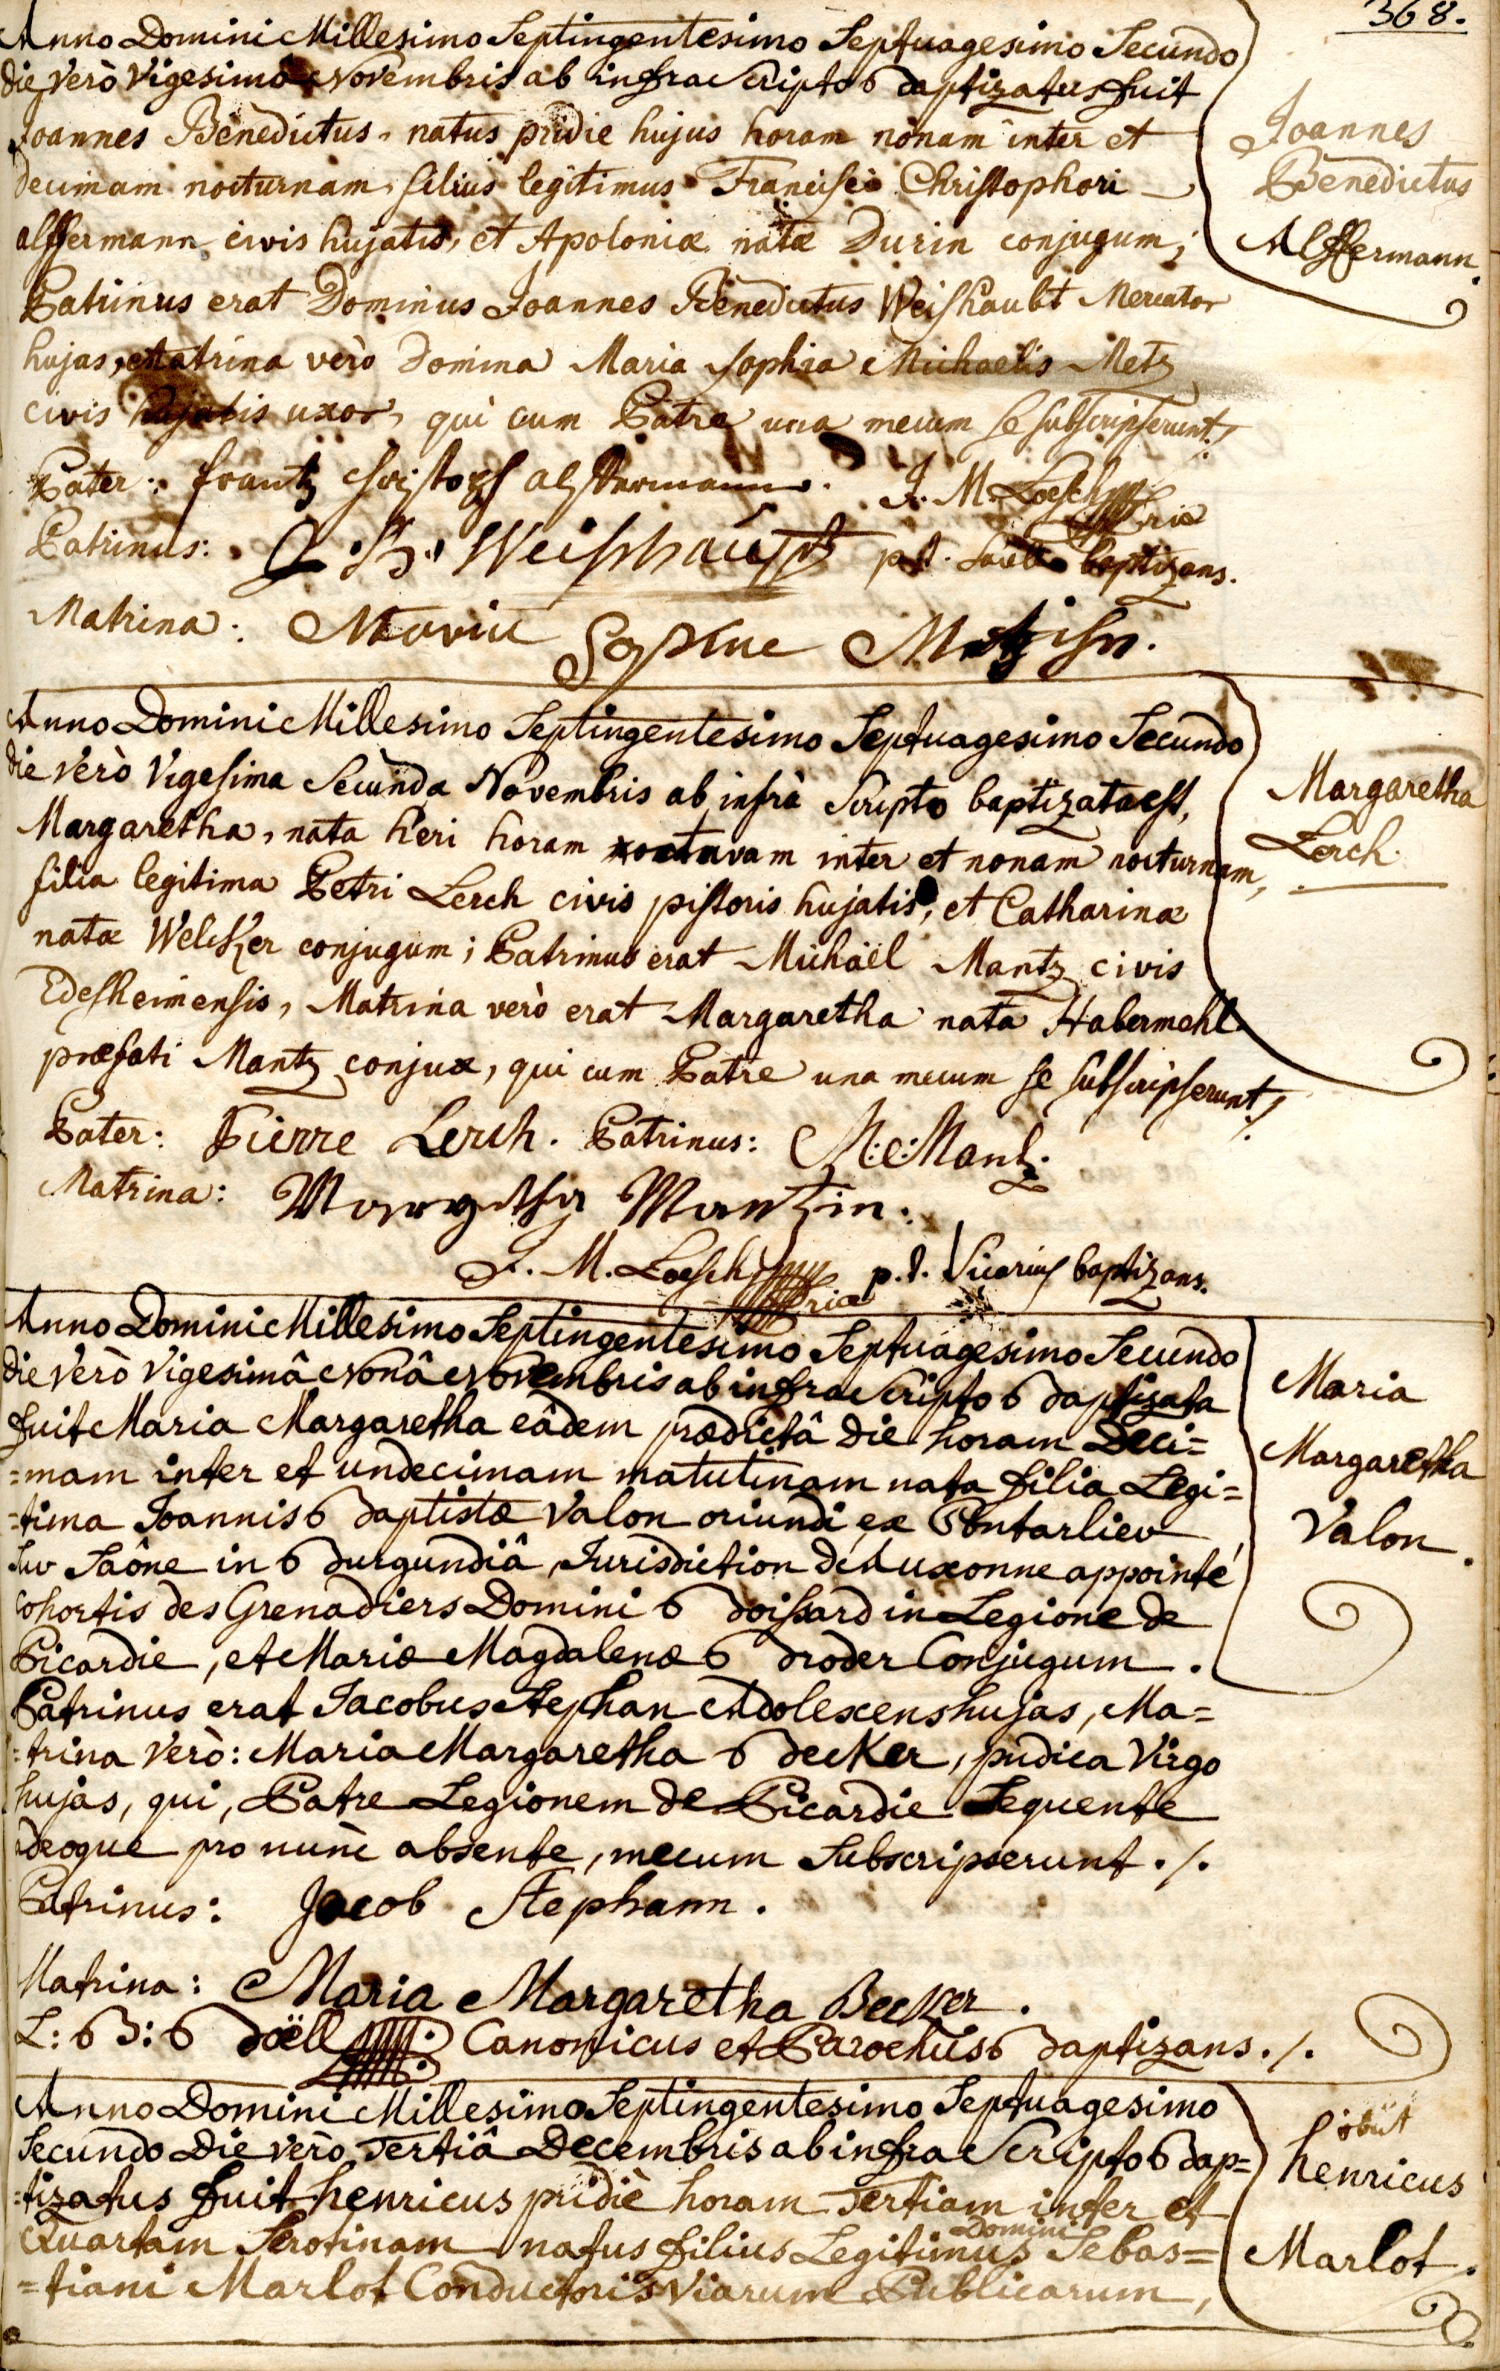 368.
Anno Domini Millesimo Septingentesimo Septuagesimo Secundo
die verò vigesimâ Novembris ab infra scripto baptizatus fuit
Joannes Benedictus, natus pridie hujus horam nonam inter et
decimam nocturnam, filius legitimus Francisci Christophori
alffermann civis hujatis, et Apoloniæ natæ Durin conjugum;
Patrinus erat Dominus Joannes Benedictus Weishaubt Mercator
hujas, Matrina verò Domina Maria Sophia Michaelis Metz
civis hujatis uxor, qui cum Patre una mecum se subscripserunt ./.
Pater: frantz christoph alffermann.
J. M. Loesch
Patrinus: J. B. Weishaupt
p.t. baptizans.
Matrina: Maria Sophie Metzisn.
Joannes
Benedictus
Alffermann.
Anno Domini Millesimo Septingentesimo Septuagesimo Secundo
die verò vigesima Secunda Novembris ab infrà scripto baptizata est,
Margaretha, nata heri horam octavam inter et nonam nocturnam,
filia legitima Petri Lerch civis pistoris hujatis, et Catharinæ
natæ Welcker conjugum; Patrinus erat Michäel Mantz civis
Edesheimensis, Matrina verò erat Margaretha nata Habermehl
præfati Mantz conjux, qui cum Patre una mecum se subscripserunt ./.
Pater: Pierre Lerch. Patrinus: M: Mantz.
Matrina: Margretha Mantzin.
J. M. Loesch p.t. Vicarius baptizans.
Margaretha
Lerch.
Anno Domini Millesimo Septingentesimo Septuagesimo Secundo
die verò vigesimâ Nonâ Novembris ab infra scripto baptizata
fuit Maria Margaretha eâdem prædictâ die horam Deci=
=mam inter et undecimam matutinam nata filia Legi=
=tima Joannis Baptistæ Valon oriundi ex Pontarlieu
Sur Saône in Burgundiâ, Jurisdiction de Auxonne appointé
cohortis des Grenadiers Domini Boissard in Legione de
Picardie, et Mariæ Magdalenæ Broder Conjugum.
Patrinus erat Jacobus Stephan Adolescens hujas, Ma=
=trina verò: Maria Margaretha Becker, pudica virgo
hujas, qui, Patre Legionem de Picardie Sequente
adeoque pro nunc absente, mecum Subscripserunt ./.
Patrinus: Jacob Stephann.
Matrina: Maria Margaretha Becker.
L: B: Boëll Canonicus et Parochus baptizans ./.
Maria
Margaretha
Valon.
Anno Domini Millesimo Septingentesimo Septuagesimo
Secundo die verò Tertiâ Decembris ab infra scripto bap=
=tizatus fuit henricus pridiè horam Tertiam inter et
Quartam Serotinam natus filius Legitimus Domini Sebas=
=tiani Marlot Conductoris viarum Publicarum,
obiit
henricus
Marlot.